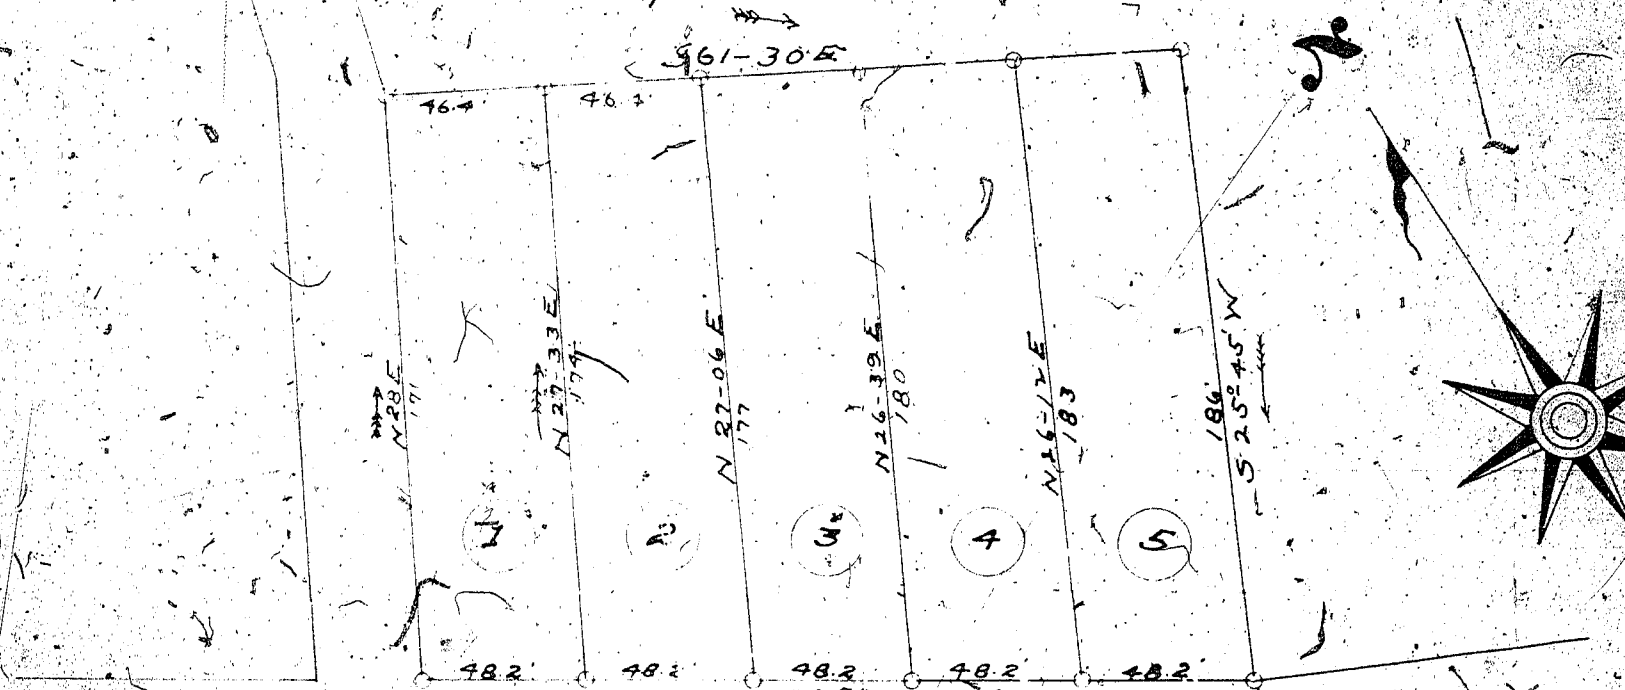 S61-30E
46.4'
46.1
N28E
171
N27-33E
174
N 27-06 E
177
N26-39E
180
N26-12E
183
186'
S 25°-45' W
1
2
3
4
5
48.2'
48.2
48.2
48.2'
48.2'